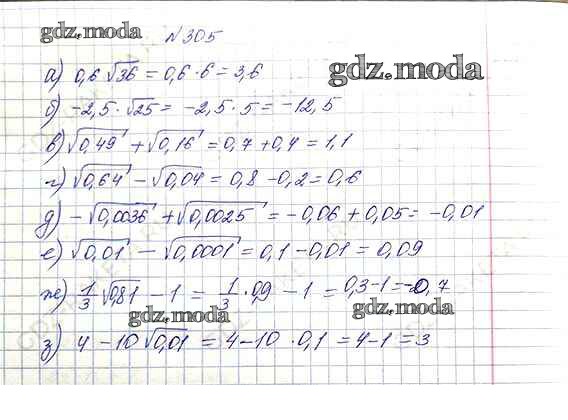 gdz.moda № 305
а) 0,6 √36 = 0,6 · 6 = 3,6
gdz.moda
б) -2,5 · √25 = -2,5 · 5 = -12,5
в) √0,49 + √0,16 = 0,7 + 0,4 = 1,1
gdz.moda
г) √0,64 - √0,04 = 0,8 - 0,2 = 0,6
д) -√0,0036 + √0,0025 = -0,06 + 0,05 = -0,01
е) √0,01 - √0,0001 = 0,1 - 0,01 = 0,09
ж) 1/3 √0,81 - 1 = 1/3 · 0,9 - 1 = 0,3 - 1 = -0,7
gdz.moda gdz.moda
з) 4 - 10 √0,01 = 4 - 10 · 0,1 = 4 - 1 = 3